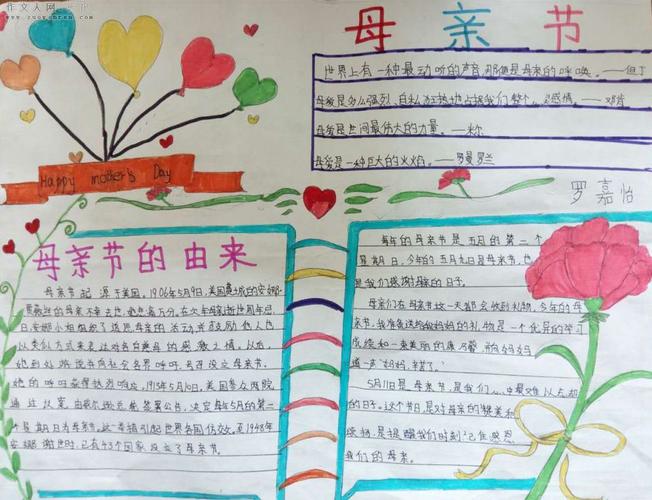 作文人网
母亲节
世界上有一种最动听的声音,那便是母亲的呼唤。——但丁
母爱是多么强烈、自私、狂热地占据我们整个心灵的感情。——邓肯
母爱是世间最伟大的力量。——米尔
母爱是一种巨大的火焰。——罗曼罗兰
罗嘉怡
Happy mother's Day
母亲节的由来
母亲节起源于美国。1906年5月9日,美国费城的安娜
的母亲不幸去世,她悲痛万分。在次年母亲逝世周年忌
日,安娜小姐组织了追思母亲的活动,并鼓励他人也
以类似方式来表达对各自慈母的感激之情。从此,
她到处游说并向社会各界呼吁,号召设立母亲节。
她的呼吁获得热烈响应。1913年5月10日,美国参众两院
通过议案,由威尔逊总统签署公布,决定每年5月的第二
个星期日为母亲节。这一举措引起世界各国仿效,至1948年
安娜谢世时,已有43个国家设立了母亲节。
每年的母亲节是五月的第二个
星期日,今年的五月九日是母亲节,也
是我们感谢母亲的日子。
母亲们在母亲节这一天都会收到礼物,今年的母
亲节,我准备送给我妈妈的礼物是一个优异的学习
成绩和一束美丽的康乃馨,向妈妈
道一声"妈妈,辛苦了。"
5月11日是母亲节,是我们一中最难以忘怀
的日子。这个节日是对母亲的赞美和
颂扬,是提醒我们时刻记住感恩
我们的母亲。